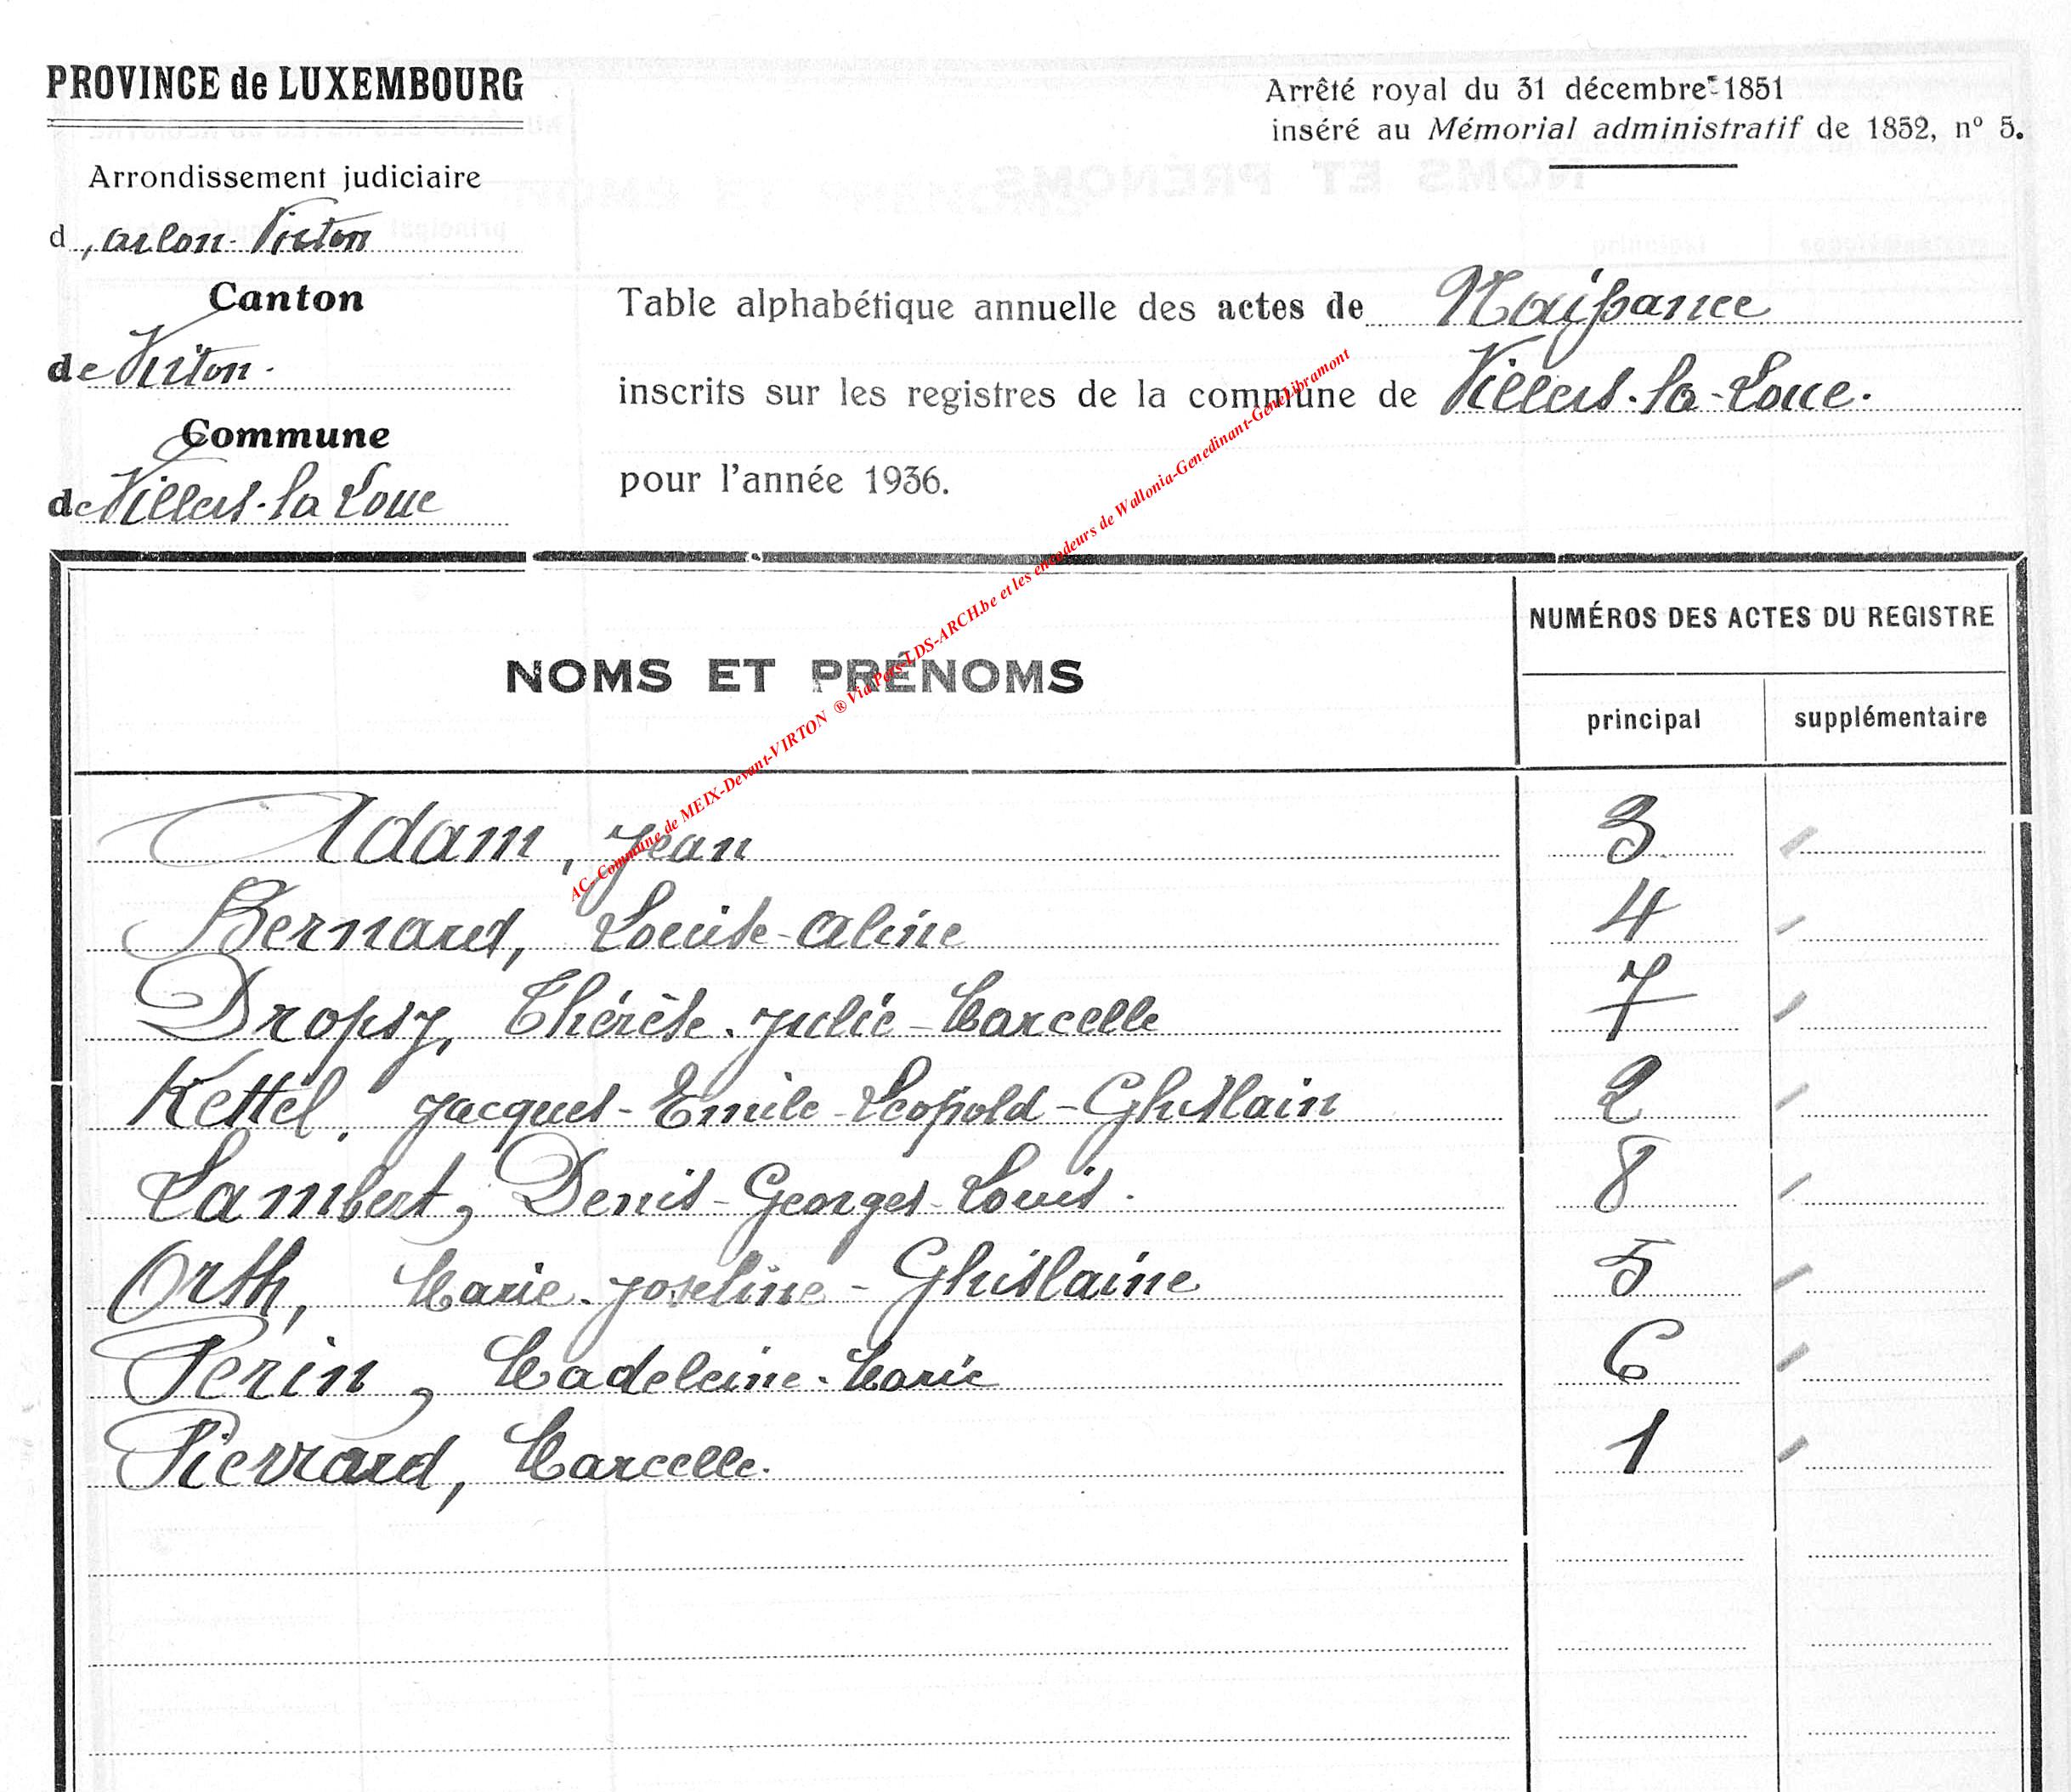 PROVINCE de LUXEMBOURG
Arrondissement judiciaire
d'Arlon-Virton
Canton
de Virton.
Commune
de Villers-la Loue
Arrêté royal du 31 décembre 1851
inséré au Mémorial administratif de 1852, nº 5.
Table alphabétique annuelle des actes de Naissance
inscrits sur les registres de la commune de Villers-la-Loue.
pour l'année 1936.
AC-Commune de MEIX-Devant-VIRTON ® Via Pers-LDS-ARCH.be et les encodeurs de Wallonia-Genedinant-GeneLibramont
NOMS ET PRÉNOMS
NUMÉROS DES ACTES DU REGISTRE
principal supplémentaire
Adam, Jean 3
Bernard, Louise-Aline 4
Dropsy, Thérèse-Julie-Marcelle 7
Kettel, Jacques-Emile-Léopold-Ghislain 2
Lambert, Denis-Georges-Louis. 8
Orth, Marie-Joseline-Ghislaine 5
Perin, Madeleine-Marie 6
Pierrard, Marcelle. 1